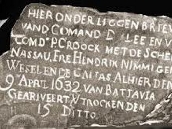 HIER ONDER LEGGEN BRIEVEN
VAN D COMAND D LEE EN V
COMDR P CROOCK MET DE SCHEPEN
NASSAU FRE HENDRIK NIMMIGEN
WESEL EN DE GALIAS ALHIER DEN
9 APRIL 1632 VAN BATTAVIA
GEARIVEERT VTROCKEN DEN
15 DITTO